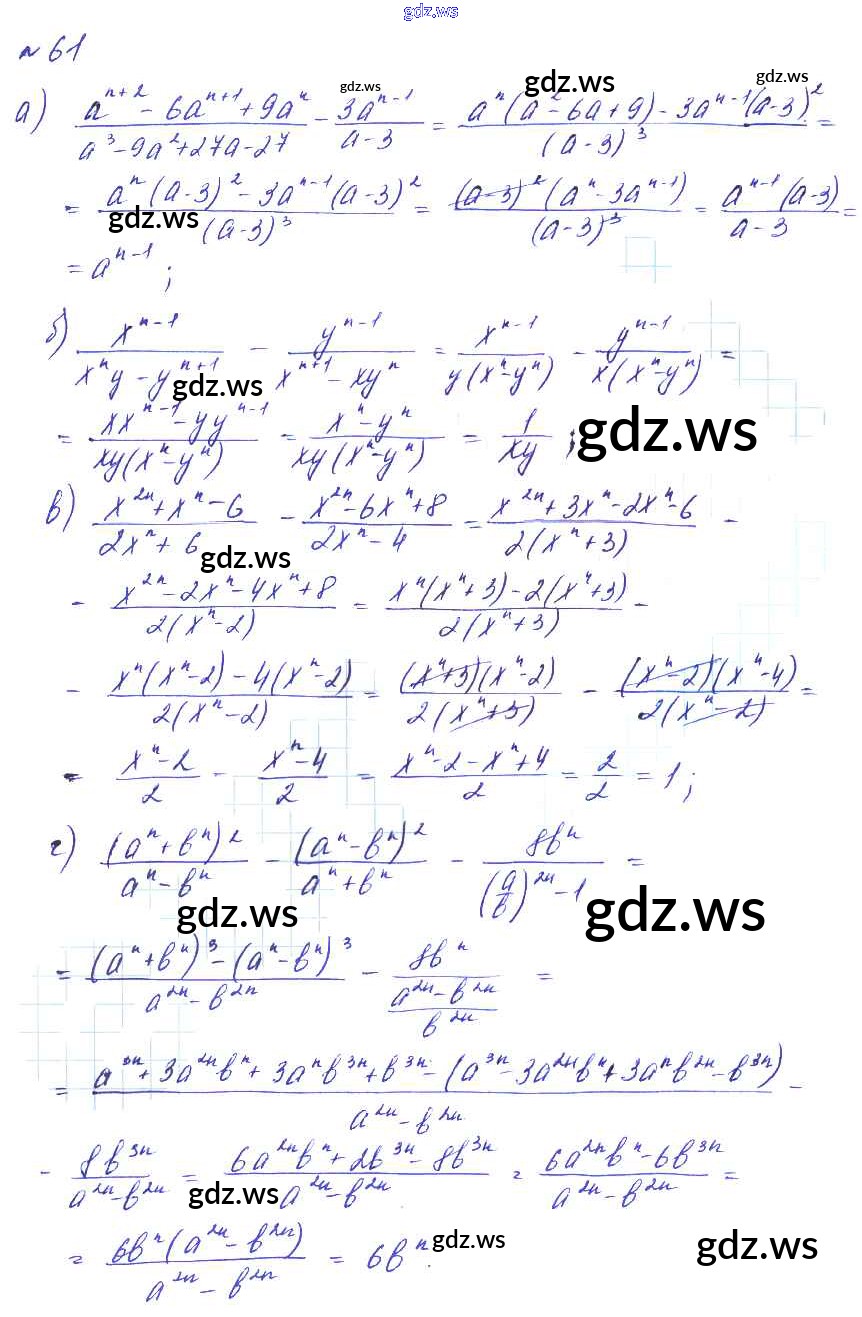 gdz.ws
№ 61
gdz.ws gdz.ws gdz.ws
а) (a^{n+2} - 6a^{n+1} + 9a^n)/(a^3 - 9a^2 + 27a - 27) - 3a^{n-1}/(a-3) = (a^n(a^2 - 6a + 9) - 3a^{n-1}(a-3)^2)/(a-3)^3 =
= (a^n(a-3)^2 - 3a^{n-1}(a-3)^2)/(a-3)^3 = ((a-3)^2(a^n - 3a^{n-1}))/(a-3)^3 = a^{n-1}(a-3)/(a-3) =
gdz.ws
= a^{n-1};
б) x^{n-1}/(x^n y - y^{n+1}) - y^{n-1}/(x^{n+1} - xy^n) = x^{n-1}/(y(x^n - y^n)) - y^{n-1}/(x(x^n - y^n)) =
gdz.ws
= (xx^{n-1} - yy^{n-1})/(xy(x^n - y^n)) = (x^n - y^n)/(xy(x^n - y^n)) = 1/(xy);
gdz.ws
в) (x^{2n} + x^n - 6)/(2x^n + 6) - (x^{2n} - 6x^n + 8)/(2x^n - 4) = (x^{2n} + 3x^n - 2x^n - 6)/(2(x^n + 3)) -
gdz.ws
- (x^{2n} - 2x^n - 4x^n + 8)/(2(x^n - 2)) = (x^n(x^n + 3) - 2(x^n + 3))/(2(x^n + 3)) -
- (x^n(x^n - 2) - 4(x^n - 2))/(2(x^n - 2)) = ((x^n + 3)(x^n - 2))/(2(x^n + 3)) - ((x^n - 2)(x^n - 4))/(2(x^n - 2)) =
= (x^n - 2)/2 - (x^n - 4)/2 = (x^n - 2 - x^n + 4)/2 = 2/2 = 1;
г) (a^n + b^n)^2/(a^n - b^n) - (a^n - b^n)^2/(a^n + b^n) - 8b^n/((a/b)^{2n} - 1) =
gdz.ws gdz.ws
= ((a^n + b^n)^3 - (a^n - b^n)^3)/(a^{2n} - b^{2n}) - 8b^n/((a^{2n} - b^{2n})/b^{2n}) =
= (a^{3n} + 3a^{2n}b^n + 3a^n b^{3n} + b^{3n} - (a^{3n} - 3a^{2n}b^n + 3a^n b^{2n} - b^{3n}))/(a^{2n} - b^{2n}) -
- 8b^{3n}/(a^{2n} - b^{2n}) = (6a^{2n}b^n + 2b^{3n} - 8b^{3n})/(a^{2n} - b^{2n}) = (6a^{2n}b^n - 6b^{3n})/(a^{2n} - b^{2n}) =
gdz.ws
= 6b^n(a^{2n} - b^{2n})/(a^{2n} - b^{2n}) = 6b^n.
gdz.ws gdz.ws